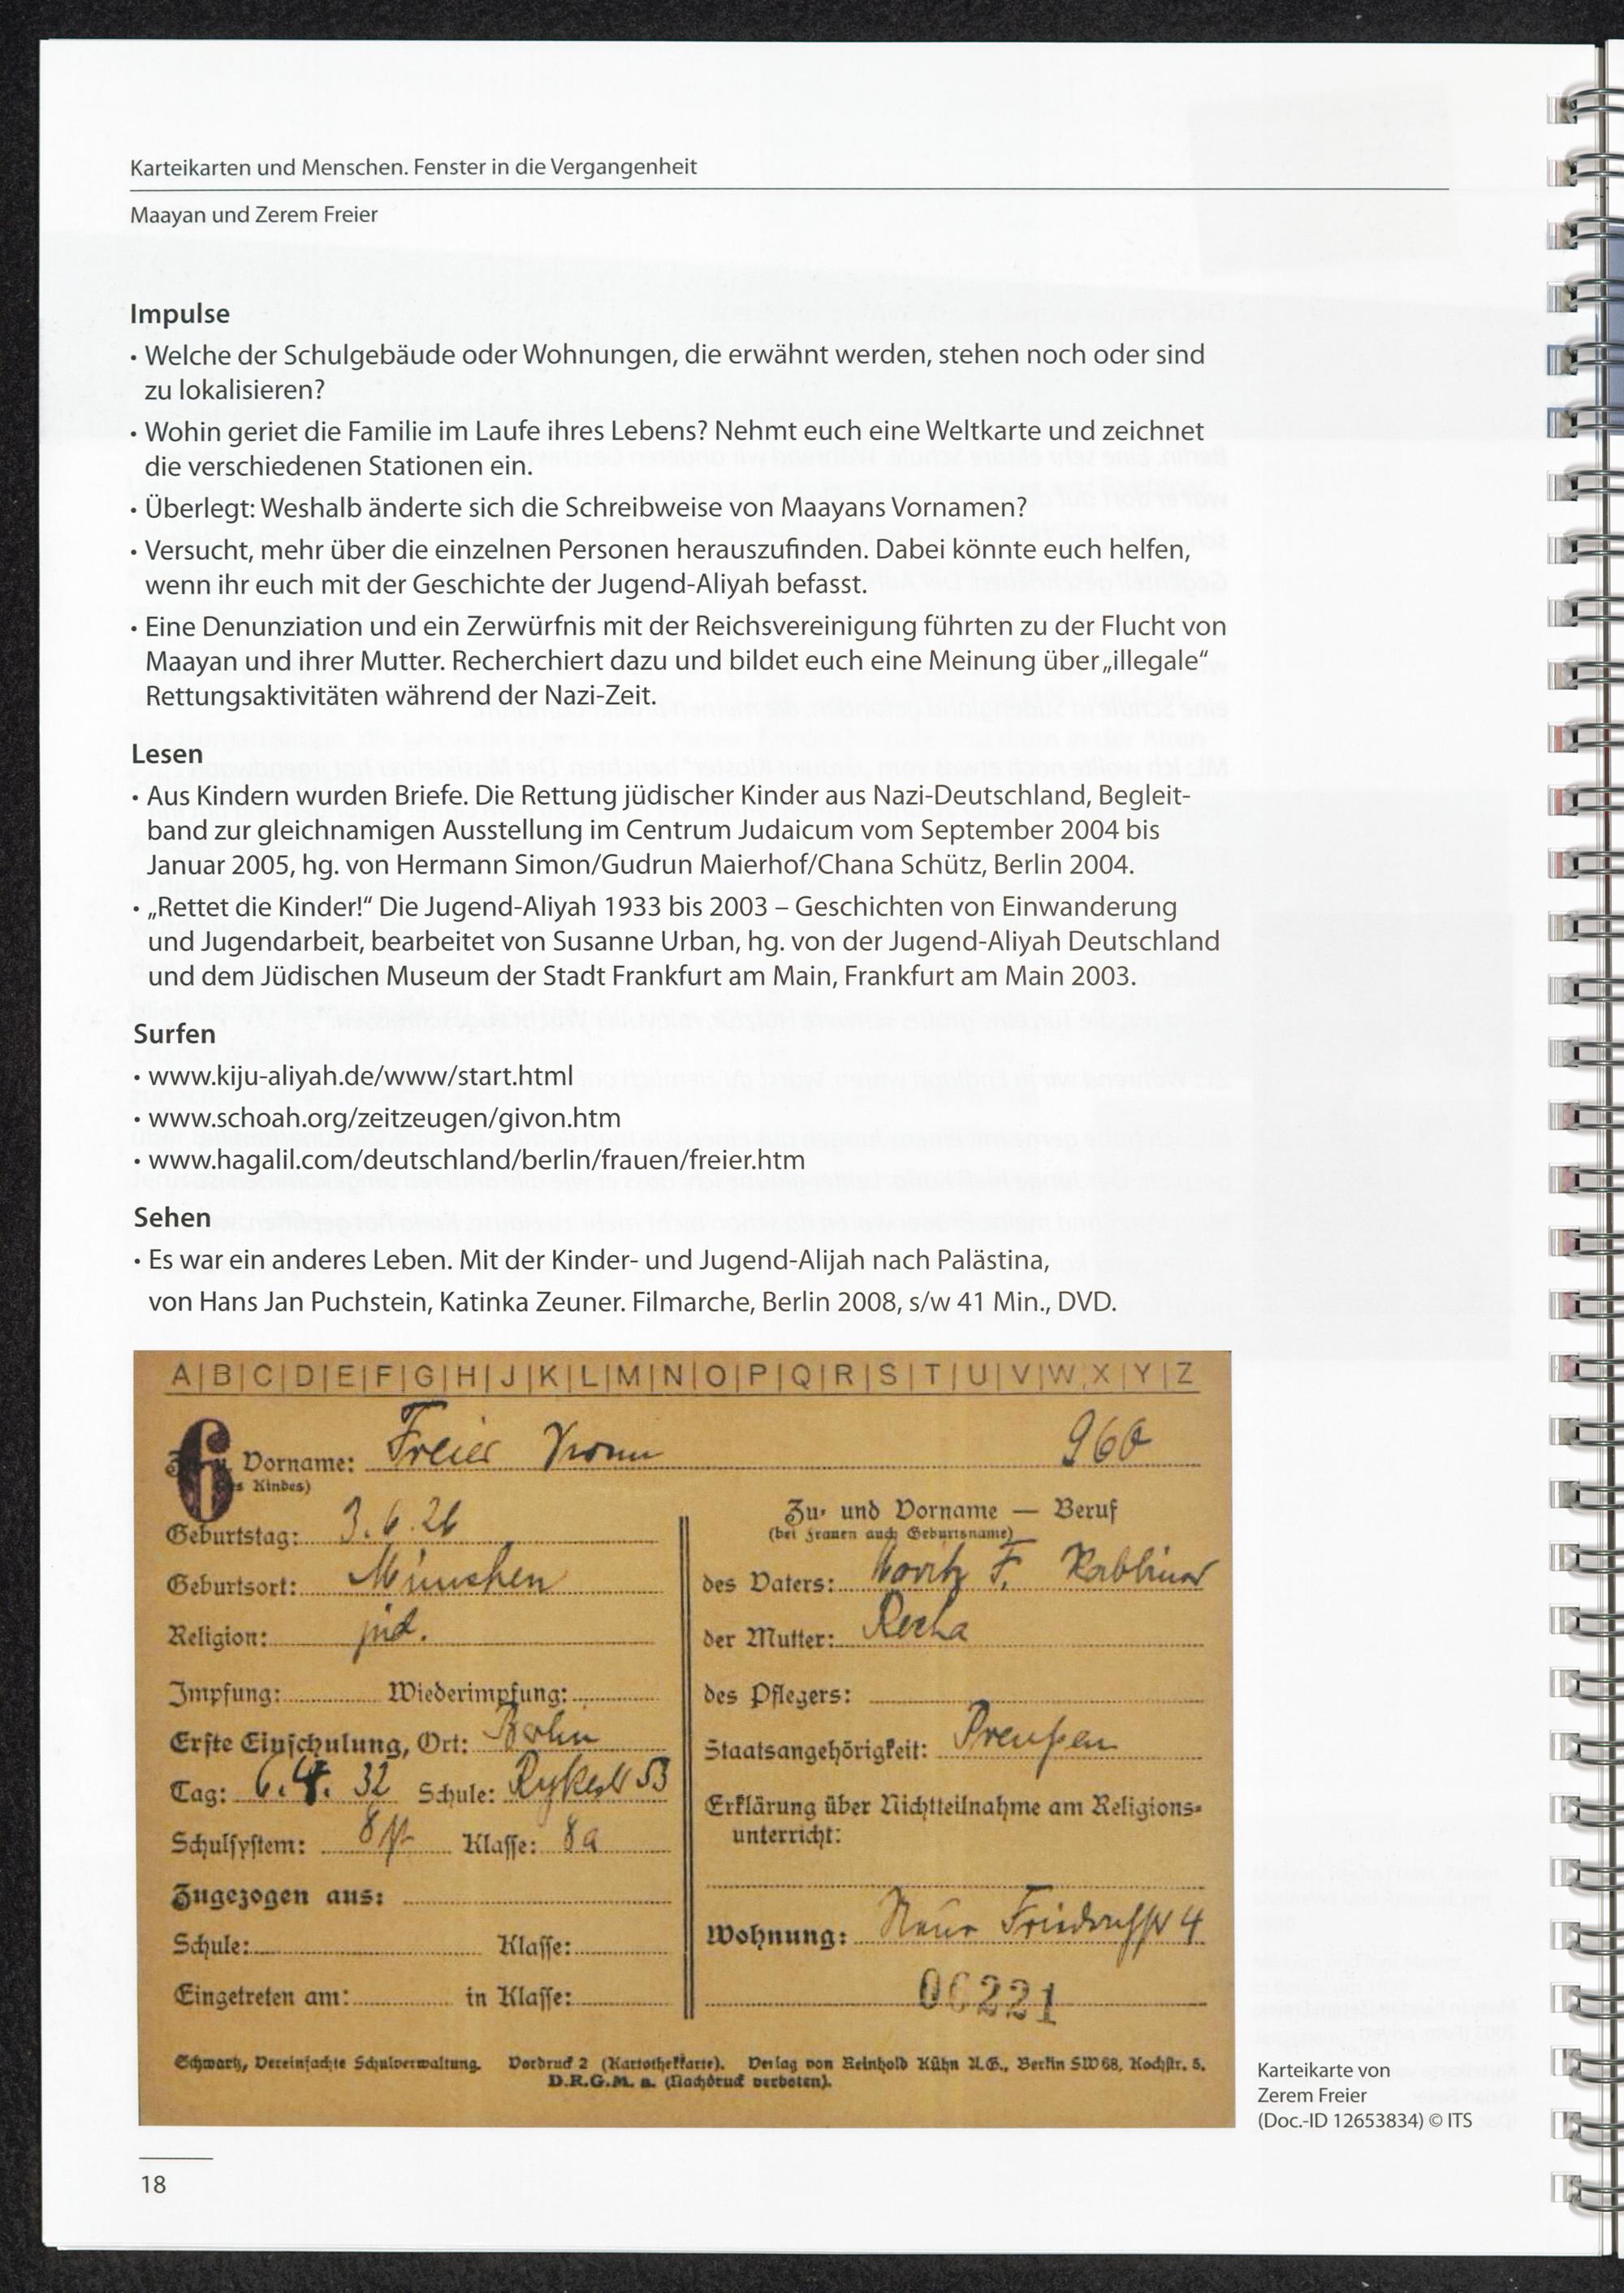 Karteikarten und Menschen. Fenster in die Vergangenheit
Maayan und Zerem Freier
Impulse
• Welche der Schulgebäude oder Wohnungen, die erwähnt werden, stehen noch oder sind
zu lokalisieren?
• Wohin geriet die Familie im Laufe ihres Lebens? Nehmt euch eine Weltkarte und zeichnet
die verschiedenen Stationen ein.
• Überlegt: Weshalb änderte sich die Schreibweise von Maayans Vornamen?
• Versucht, mehr über die einzelnen Personen herauszufinden. Dabei könnte euch helfen,
wenn ihr euch mit der Geschichte der Jugend-Aliyah befasst.
• Eine Denunziation und ein Zerwürfnis mit der Reichsvereinigung führten zu der Flucht von
Maayan und ihrer Mutter. Recherchiert dazu und bildet euch eine Meinung über „illegale“
Rettungsaktivitäten während der Nazi-Zeit.
Lesen
• Aus Kindern wurden Briefe. Die Rettung jüdischer Kinder aus Nazi-Deutschland, Begleit-
band zur gleichnamigen Ausstellung im Centrum Judaicum vom September 2004 bis
Januar 2005, hg. von Hermann Simon/Gudrun Maierhof/Chana Schütz, Berlin 2004.
• „Rettet die Kinder!“ Die Jugend-Aliyah 1933 bis 2003 – Geschichten von Einwanderung
und Jugendarbeit, bearbeitet von Susanne Urban, hg. von der Jugend-Aliyah Deutschland
und dem Jüdischen Museum der Stadt Frankfurt am Main, Frankfurt am Main 2003.
Surfen
• www.kiju-aliyah.de/www/start.html
• www.schoah.org/zeitzeugen/givon.htm
• www.hagalil.com/deutschland/berlin/frauen/freier.htm
Sehen
• Es war ein anderes Leben. Mit der Kinder- und Jugend-Alijah nach Palästina,
von Hans Jan Puchstein, Katinka Zeuner. Filmarche, Berlin 2008, s/w 41 Min., DVD.
A|B|C|D|E|F|G|H|J|K|L|M|N|O|P|Q|R|S|T|U|V|W|X|Y|Z
6 Vorname: Freier 960
Kindes)
Geburtstag: 3.6.26
Geburtsort: München
Religion: jüd.
Impfung: Wiederimpfung:
Erste Einschulung, Ort: Berlin
Tag: 6.4.32 Schule: Rykestr 53
Schulsystem: Klasse: 8a
Zugezogen aus:
Schule: Klasse:
Eingetreten am: in Klasse:
Zu- und Vorname — Beruf
(bei Frauen auch Geburtsname)
des Vaters: Moritz F. Rabbiner
der Mutter: Recha
des Pflegers:
Staatsangehörigkeit: Preußen
Erklärung über Nichtteilnahme am Religions-
unterricht:
Wohnung: Neue Friedrichstr 4
06221
Schwartz, Vereinfachte Schulverwaltung. Vordruck 2 (Kartothekkarte). Verlag von Reinhold Kühn A.G., Berlin SW68, Kochstr. 5.
D.R.G.M. a. (Nachdruck verboten).
Karteikarte von
Zerem Freier
(Doc.-ID 12653834) © ITS
18